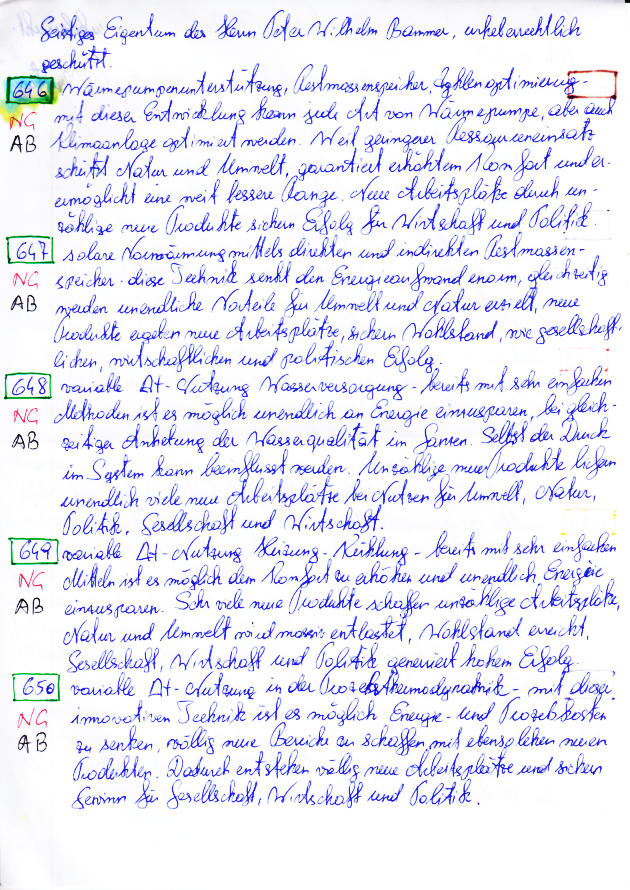 Geistiges Eigentum des Herrn Peter Wilhelm Bammer, urheberrechtlich
geschützt.
646 Wärmepumpenunterstützung, Restmassenspeicher, optimierung-
NG mit dieser Entwicklung kann jede Art von Wärmepumpe, aber auch
AB Klimaanlage optimiert werden. Weil geringerer Ressourceneinsatz
schützt Natur und Umwelt, garantiert erhöhtem Komfort und er-
ermöglicht eine weit bessere Range. Neue Arbeitsplätze durch un-
zählige neue Produkte sichern Erfolg für Wirtschaft und Politik.
647 solare mittels direkten und indirekten Restmassen-
NG speicher - diese Technik senkt den Energieaufwand enorm, gleichzeitig
AB werden unendliche Vorteile für Umwelt und Natur erzielt, neue
Produkte ergeben neue Arbeitsplätze, sichern Wohlstand, wie gesellschaft-
lichen, wirtschaftlichen und politischen Erfolg.
648 variable Δt-Nutzung Wasserversorgung - bereits mit sehr einfachen
NG Methoden ist es möglich unendlich an Energie einzusparen, bei gleich-
AB zeitiger Anhebung der Wasserqualität im Ganzen. Selbst der Druck
im System kann beeinflusst werden. Unzählige neue Produkte liefern
unendlich viele neue Arbeitsplätze bei Nutzen für Umwelt, Natur,
Politik, Gesellschaft und Wirtschaft.
649 variable Δt-Nutzung Heizung-Kühlung - bereits mit sehr einfachen
NG Mitteln ist es möglich dem Komfort zu erhöhen und unendlich Energie
AB einzusparen. Sehr viele neue Produkte schaffen unzählige Arbeitsplätze,
Natur und Umwelt wird massiv entlastet, Wohlstand erreicht,
Gesellschaft, Wirtschaft und Politik generiert hohem Erfolg.
650 variable Δt-Nutzung in der Prozeßthermodynamik - mit dieser
NG innovativen Technik ist es möglich Energie- und Prozeßkosten
AB zu senken, völlig neue Bereiche zu schaffen mit ebensolchen neuen
Produkten. Dadurch entstehen völlig neue Arbeitsplätze und sichern
Gewinn für Gesellschaft, Wirtschaft und Politik.